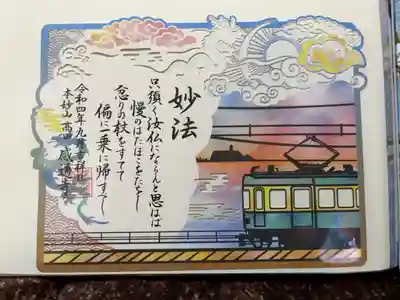 妙法
只須く汝仏にならんと思はば
慢のはたほこをたをし
忿りの杖をすてて
偏に一乗に帰すべし
令和四年九月吉祥日
本妙山 感通寺